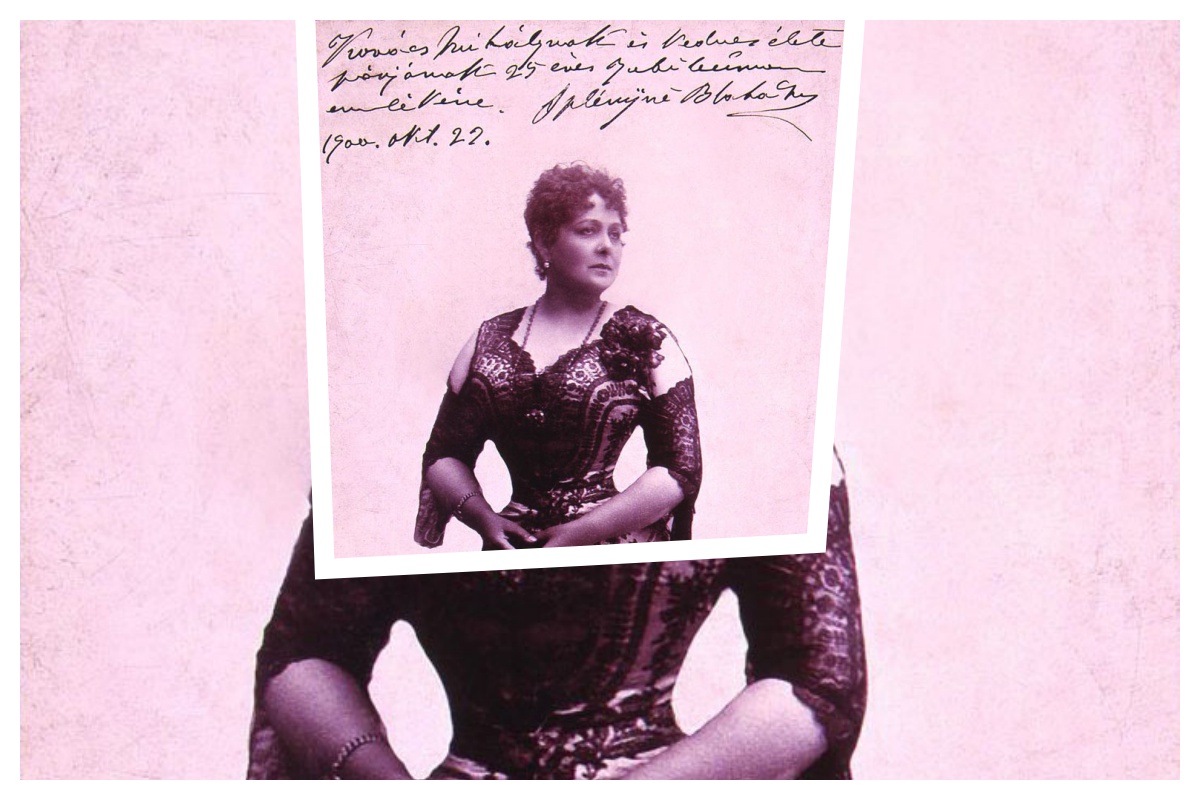 Kovács Mihálynak és kedves élete
párjának 25 éves Jubileumára
emlékéne. Splényiné Blaha Luj
1900. okt. 22.